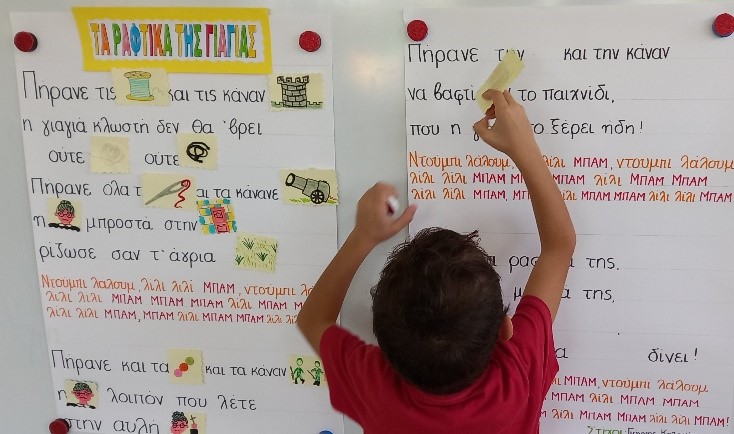 ΤΑ ΡΑΦΤΙΚΑ ΤΗΣ ΓΙΑΓΙΑΣ
Πήρανε τις και τις κάναν
η γιαγιά κλωστή δεν θα 'βρει
ούτε ούτε
Πήρανε όλα τ αι τα κάνανε
η μπροστά στην
ρίζωσε σαν τ' άγρια
Ντούμπι λάλουμ, λίλι λιλί ΜΠΑΜ, ντούμπι λα
λίλι λίλι ΜΠΑΜ ΜΠΑΜ ΜΠΑΜ λίλι ΜΠΑΜ ΜΠΑΜ
λίλι λίλι ΜΠΑΜ, ΜΠΑΜ λίλι ΜΠΑΜ ΜΠΑΜ λίλι λίλι ΜΠΑΜ
Πήρανε και τα και τα κάναν
η λοιπόν που λέτε
στην αυλή
Πήρανε την και την κάναν
να βαφτί το παιχνίδι,
που η το ξέρει ήδη!
Ντούμπι λάλουμ, λίλι ΜΠΑΜ, ντούμπι λάλουμ
λίλι λίλι ΜΠΑΜ ΜΠΑΜ λίλι ΜΠΑΜ ΜΠΑΜ
λίλι λίλι ΜΠΑΜ, ΜΠΑΜ ΜΠΑΜ ΜΠΑΜ λίλι λίλι ΜΠΑΜ
ι ραφ α της,
μ ά της,
α δίνει!
ΜΠΑΜ, ντούμπι λάλουμ
λίλι ΜΠΑΜ ΜΠΑΜ
λίλι ΜΠΑΜ ΜΠΑΜ λίλι λίλι ΜΠΑΜ!
Στίχοι: